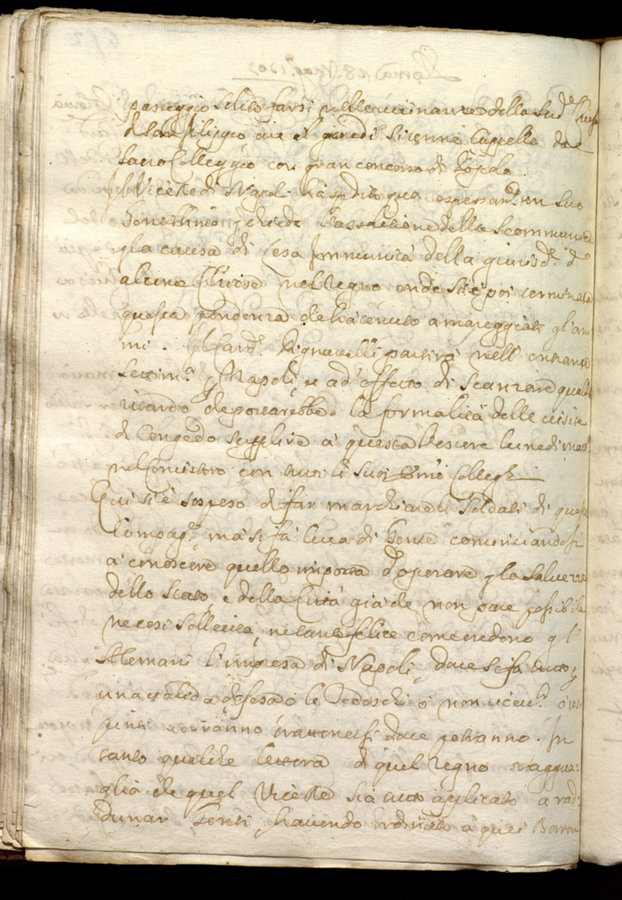 Roma 28 Mag.º 1707
passeggio solito farsi nelle vicinanze della Sud.ª Chiesa
di San Filippo ove il giovedì si tenne Cappella dal
Sacro Colleggio con gran concorso di Popolo.
Il Vice Rè di Napoli hà spedito qua espressam.te un suo
Gentilhuomo p chieder l'assolutione della Scommunica
p la causa di lesa Immunità della giurisd.e di
alcune Chiese nel Regno onde si è poi terminata
questa pendenza che hà tenuto amareggiati gl'ani
mi. Il Card. Pignattelli partirà nell'entrante
Settim.ª p Napoli, e ad'effetto di scanzare quel
ritardo che portarebbe la formalità delle visite
di Congedo supplirà à queste l'essere lunedì matt.ª
nel Concistoro con tutti li suoi Em.i Collegh.
Qui si è sospeso di far marchiare Soldati di queste
Compag.e, mà si fà leva di Gente cominciandosi
à conoscere quello importa d'operare p la salvezza
dello Stato e della Città già che non pare possibile
ne così sollecita ne tanto felice come credono gl'
Alemani l'impresa di Napoli, dove si fà tutto p
una valida difesa o le Tedeschi ò non
dove potranno. In
tanto qualche lettera di quel Regno raggua-
glia che quel Vice Rè sia tutto applicato a rad-
dunar Genti, havendo ordinato à quei Baroni